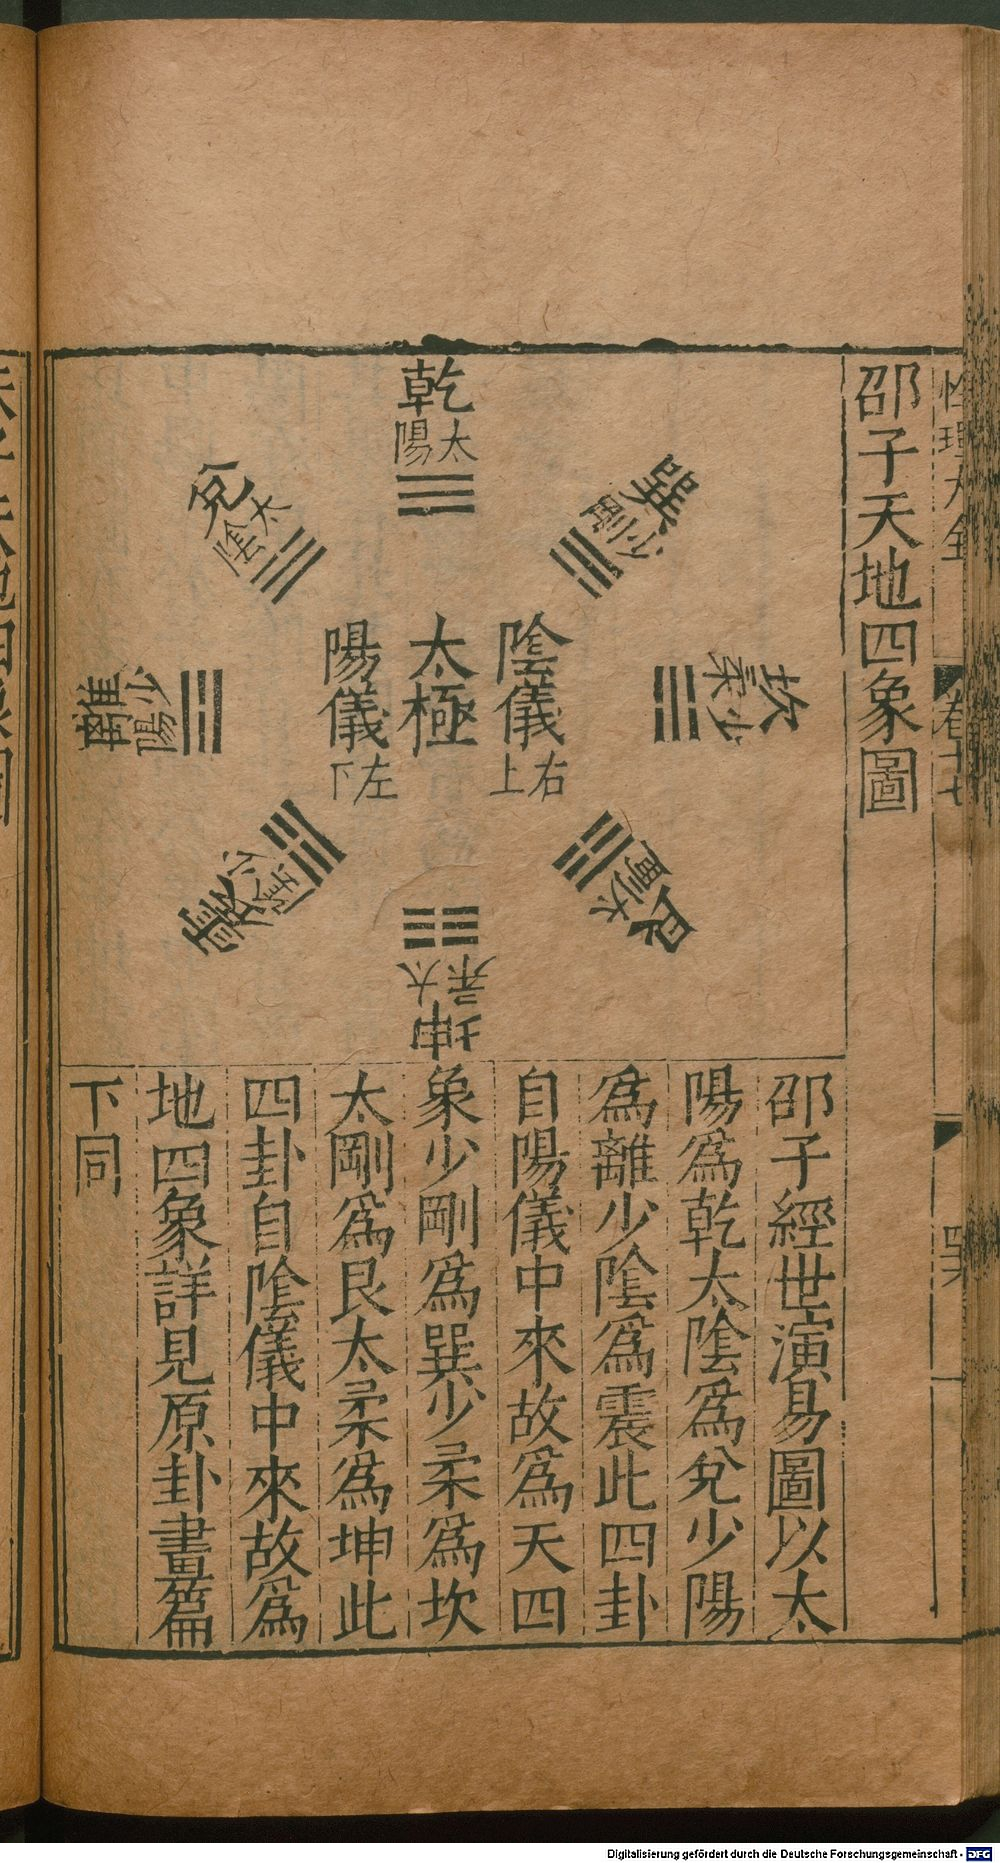 邵子天地四象圖
乾
太陽
兌
太陰
離
少陽
震
少
巽
少剛
坎
少柔
艮
太剛
坤
太柔
陰儀
右上
太極
陽儀
左下
邵子經世演易圖以太
陽爲乾太陰爲兌少陽
爲離少陰爲震此四卦
自陽儀中來故爲天四
象少剛爲巽少柔爲坎
太剛爲艮太柔爲坤此
四卦自陰儀中來故爲
地四象詳見原卦畫篇
下同
性理大全
卷十七
Digitalisierung gefördert durch die Deutsche Forschungsgemeinschaft - DFG